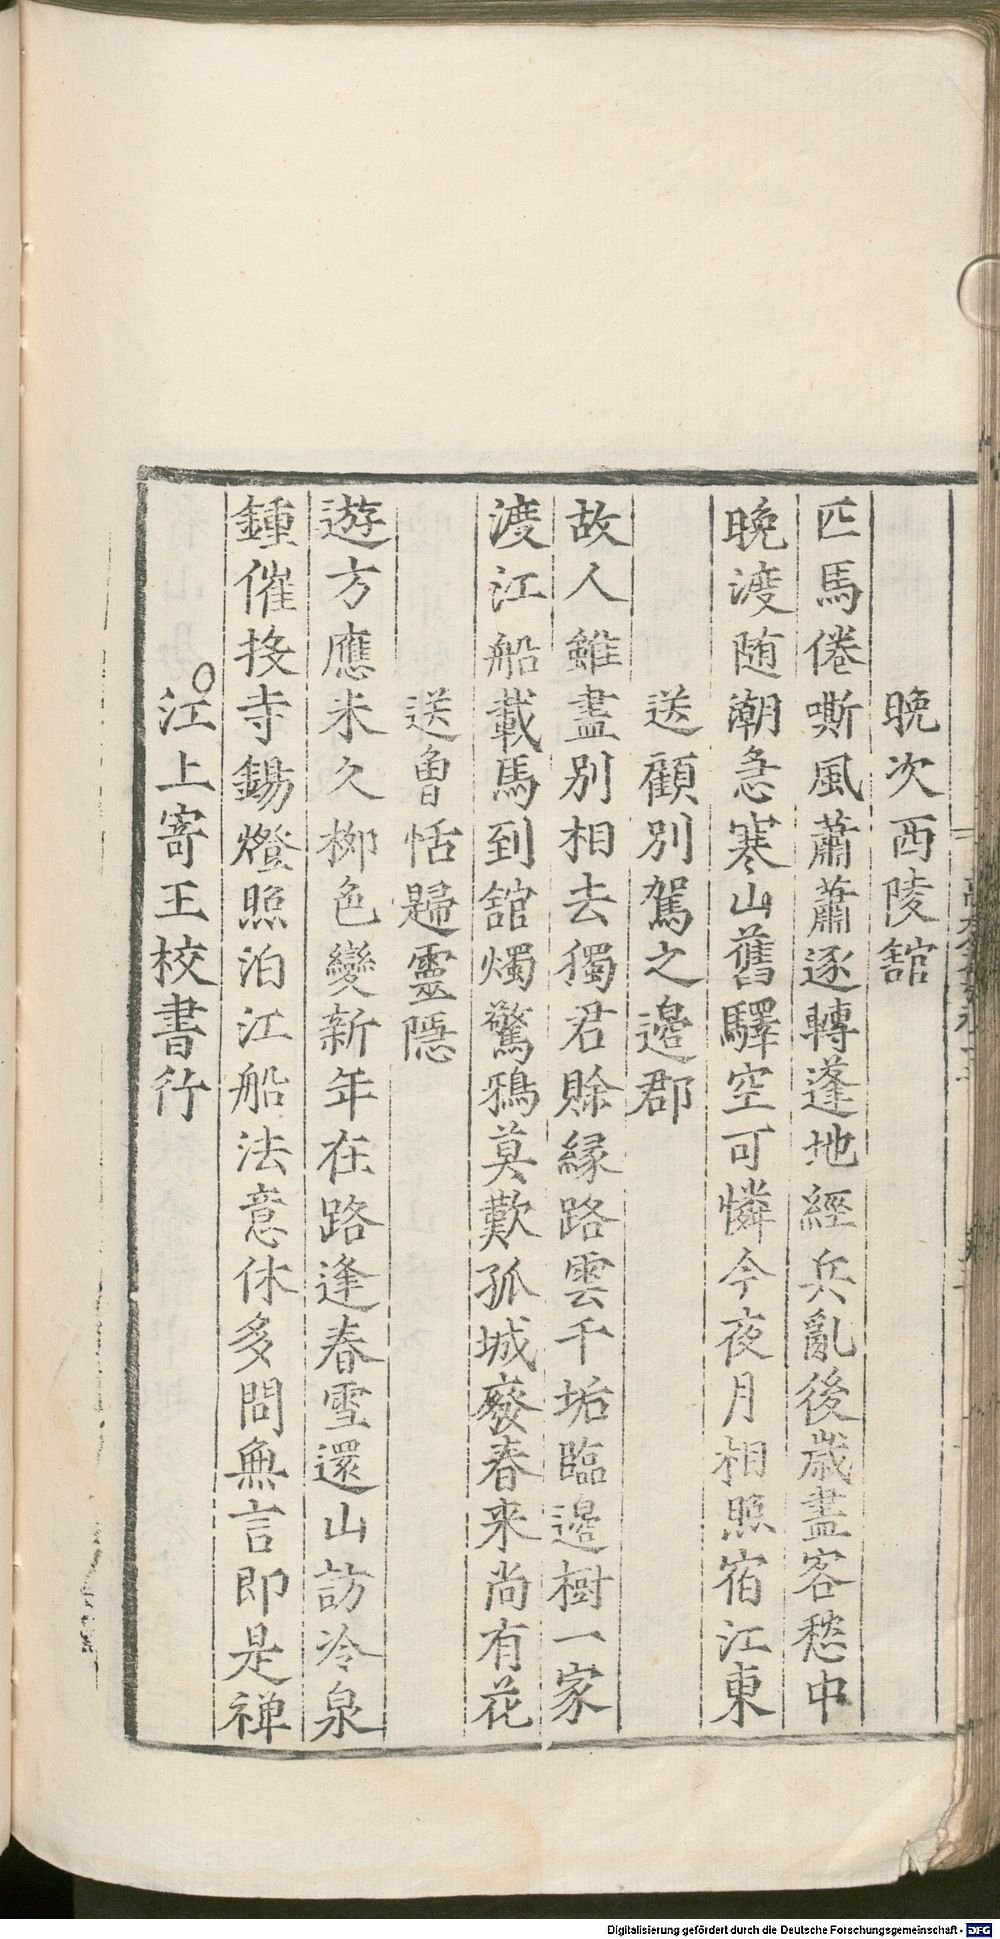 晚次西陵舘
匹馬倦嘶風蕭蕭逐轉蓬地經兵亂後歲盡客愁中
晚渡随潮急寒山舊驛空可憐今夜月相照宿江東
送顧别駕之邉郡
故人雖盡别相去獨君賒縁路雲千垢臨邉樹一家
渡江船載馬到舘燭驚鴉莫歎孤城廢春来尚有花
送魯恬歸靈隠
遊方應未久栁色變新年在路逢春雪還山訪冷泉
鍾催投寺錫燈照泊江船法意休多問無言即是禅
江上寄王校書行
Digitalisierung gefördert durch die Deutsche Forschungsgemeinschaft - DFG